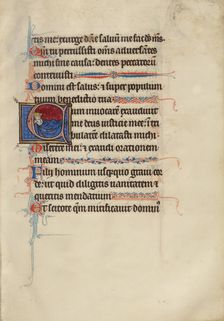 tis me: exurge dñe saluum me fac ds
Qm tu percussisti oms aduersantes
michi sine causa: dentes peccatorum
contriuisti
Domini est salus: et super populum
tuum benedictio tua
Cum inuocarem exaudiuit
me deus iusticie mee: in tri
bulatione dilatasti michi
Miserere mei: et exaudi orationem
meam
Filij hominum usqquo graui cor
de: ut quid diligitis uanitatem et
queritis mendacium
Et scitote qm mirificauit domin